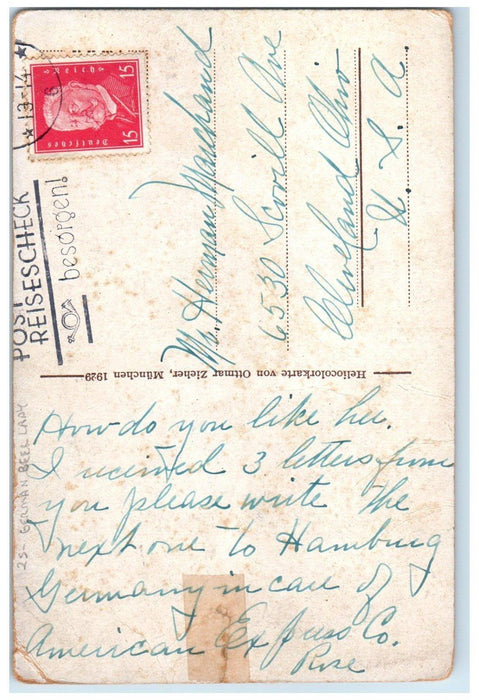 ★ 13-14 ★
POST
REISESCHECK
besorgen!
15
15
Deutsches
Reich
Mr. Herman Marchand
6530 Scovill Ave
Cleveland Ohio
U. S. A.
Heliocolorkarte von Ottmar Zieher, München 1929
25- GERMAN BEER LADY
How do you like her.
I received 3 letters from
you please write the
next one to Hamburg
Germany in care of
American Express Co.
Rose